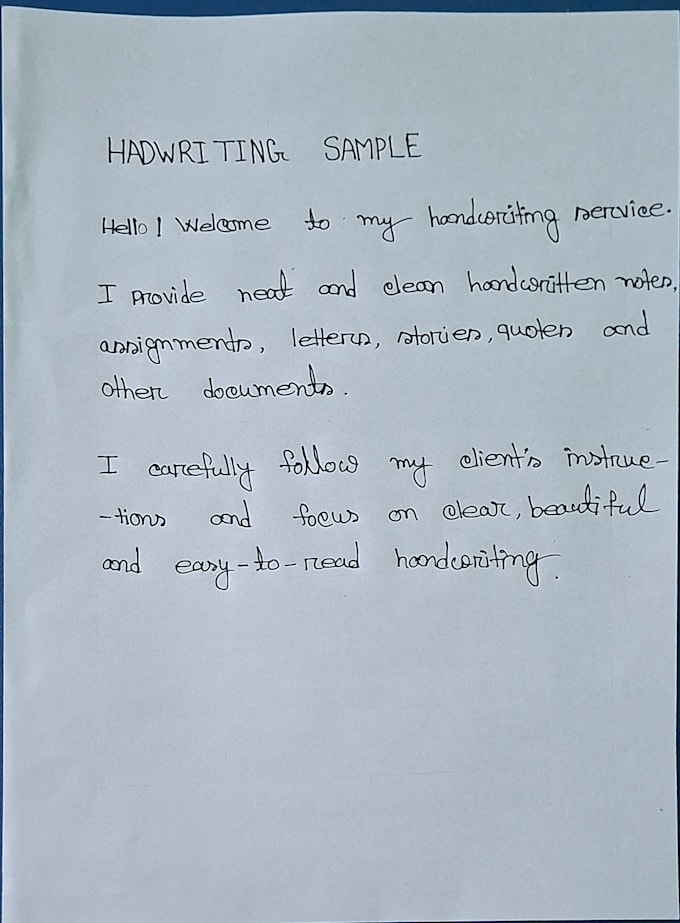 HADWRITING SAMPLE
Hello! Welcome to my handwriting service.
I provide neat and clean handwritten notes,
assignments, letters, stories, quotes and
other documents.
I carefully follow my client's instruc-
-tions and focus on clear, beautiful
and easy-to-read handwriting.